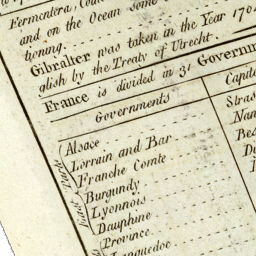 Fermentera
and on the Ocean some
tioning.
Gibralter was taken in the Year 170
glish by the Treaty of Utrecht.
France is divided in 31 Governm
Governments
Capit
East Part
Alsace
Stras
Lorrain and Bar
Nan
Franche Comte
Bes
Burgundy
Di
Lyonnois
Dauphine
Province
Languedoc